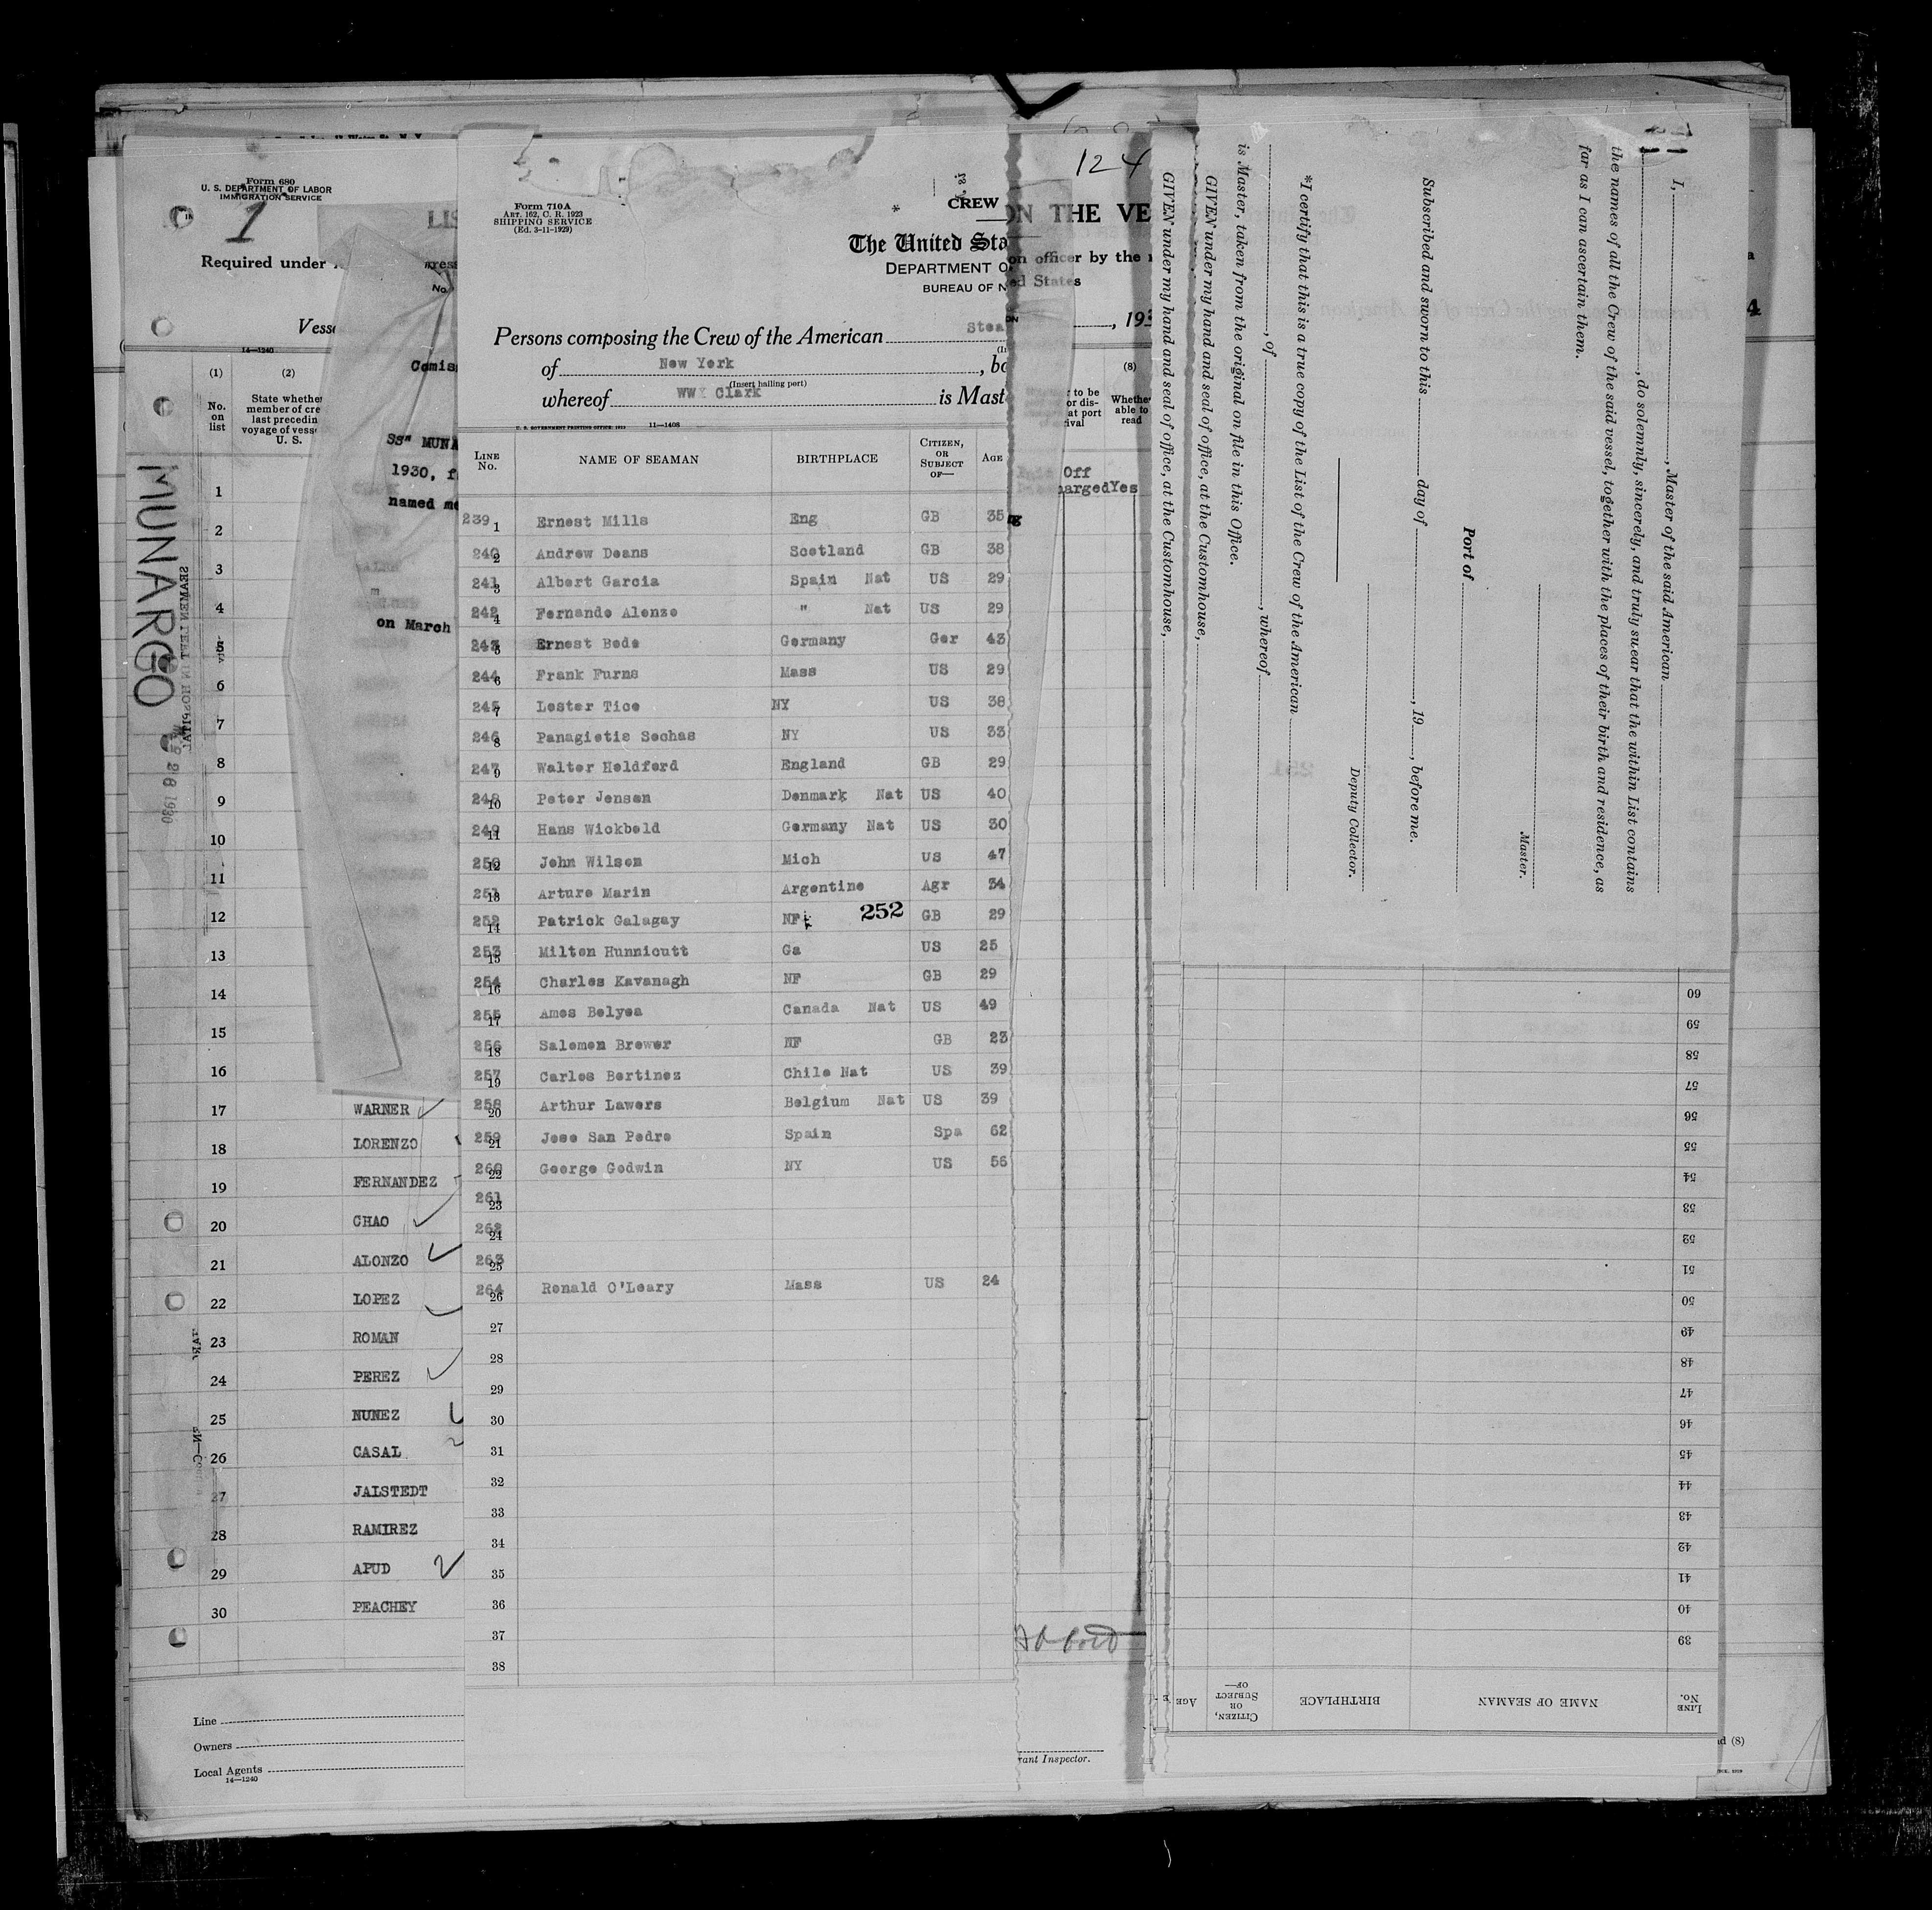 Form 680
U. S. DEPARTMENT OF LABOR
IMMIGRATION SERVICE
1
LIS
Required under
Vesse
14—1240
(1)
(2)
No.
on
list
State whether
member of cre
last precedin
voyage of vess
U. S.
MUNARGO
SEAMEN LEFT IN HOSPITAL
28 1930
Comis
SS" MUNA
1930, f
named me
on March
1
2
3
4
5
6
7
8
9
10
11
12
13
14
15
16
17 WARNER
18 LORENZO
19 FERNANDEZ
20 CHAO
21 ALONZO
22 LOPEZ
23 ROMAN
24 PEREZ
25 NUNEZ
26 CASAL
27 JALSTEDT
28 RAMIREZ
29 APUD
30 PEACHEY
Line
Owners
Local Agents
14—1240
Form 710A
ART. 162, C. R. 1923
SHIPPING SERVICE
(Ed. 3-11-1929)
* CREW
The United Sta
DEPARTMENT O
BUREAU OF N
Persons composing the Crew of the American Stea
of New York , bo
(Insert hailing port)
whereof WW Clark is Mast
U. S. GOVERNMENT PRINTING OFFICE: 1913 11—1408
LINE No. NAME OF SEAMAN BIRTHPLACE CITIZEN, OR SUBJECT OF— AGE
239 1 Ernest Mills Eng GB 35
240 2 Andrew Deans Scotland GB 38
241 3 Albert Garcia Spain Nat US 29
242 4 Fernando Alonzo " Nat US 29
243 5 Ernest Bode Germany Ger 43
244 6 Frank Furns Mass US 29
245 7 Lester Tice NY US 38
246 8 Panagiotis Sochas NY US 33
247 9 Walter Holdford England GB 29
248 10 Peter Jensen Denmark Nat US 40
249 11 Hans Wickbold Germany Nat US 30
250 12 John Wilson Mich US 47
251 13 Arturo Marin Argentine Agr 34
252 14 Patrick Galagay NF 252 GB 29
253 15 Milton Hunnicutt Ga US 25
254 16 Charles Kavanagh NF GB 29
255 17 Amos Belyea Canada Nat US 49
256 18 Salomon Brewer NF GB 23
257 19 Carlos Bertinez Chile Nat US 39
258 20 Arthur Lawers Belgium Nat US 39
259 21 Jose San Pedro Spain Spa 62
260 22 George Godwin NY US 56
261 23
262 24
263 25
264 26 Ronald O'Leary Mass US 24
27
28
29
30
31
32
33
34
35
36
37
38
124
ON THE VE
on officer by the
ed States
, 193
(8)
to be
or dis-
at port
rival
Whether
able to
read
Off
hargedYes
rant Inspector.
I, , Master of the said American
, do solemnly, sincerely, and truly swear that the within List contains
the names of all the Crew of the said vessel, together with the places of their birth and residence, as
far as I can ascertain them.
Master.
Port of
Subscribed and sworn to this day of , 19 , before me.
Deputy Collector.
*I certify that this is a true copy of the List of the Crew of the American
, of , whereof
is Master, taken from the original on file in this Office.
GIVEN under my hand and seal of office, at the Customhouse,
GIVEN under my hand and seal of office, at the Customhouse,
4
LINE No. NAME OF SEAMAN BIRTHPLACE CITIZEN, OR SUBJECT OF— AGE
39
40
41
42
43
44
45
46
47
48
49
50
51
52
53
54
55
56
57
58
59
60
d (8)